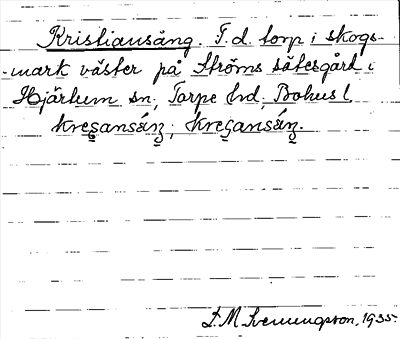 Kristiansäng. F. d. torp i skogs-
-mark väster på Ströms sätesgård i
Hjärtum sn, Torpe hd, Bohusl.
Kresansáŋ; Kreşansáŋ.
S. M. Svenungsson, 1935.